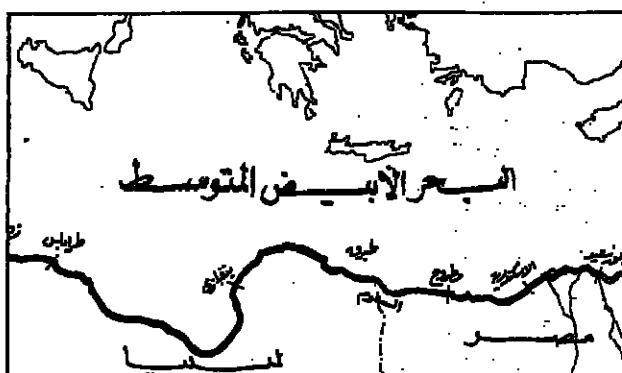 البحر الأبيض المتوسط
طرابلس
بنغازي
طبرق
مطروح
الاسكندرية
بورسعيد
السلوم
مصر
ليبيا